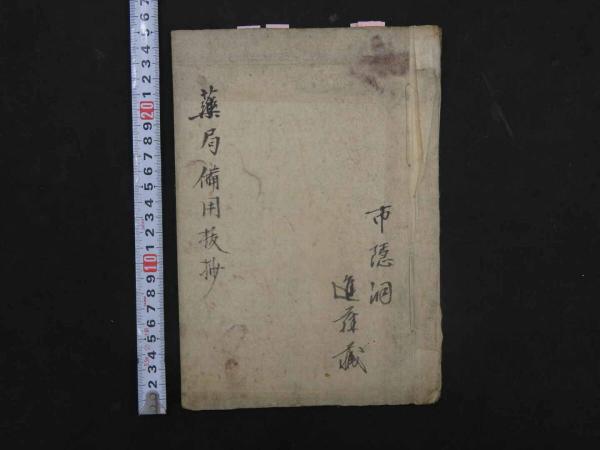 市隠洞
進蔵
藥局備用抜抄
2 3 4 5 6 7 8 9 10 1 2 3 4 5 6 7 8 9 20 1 2 3 4